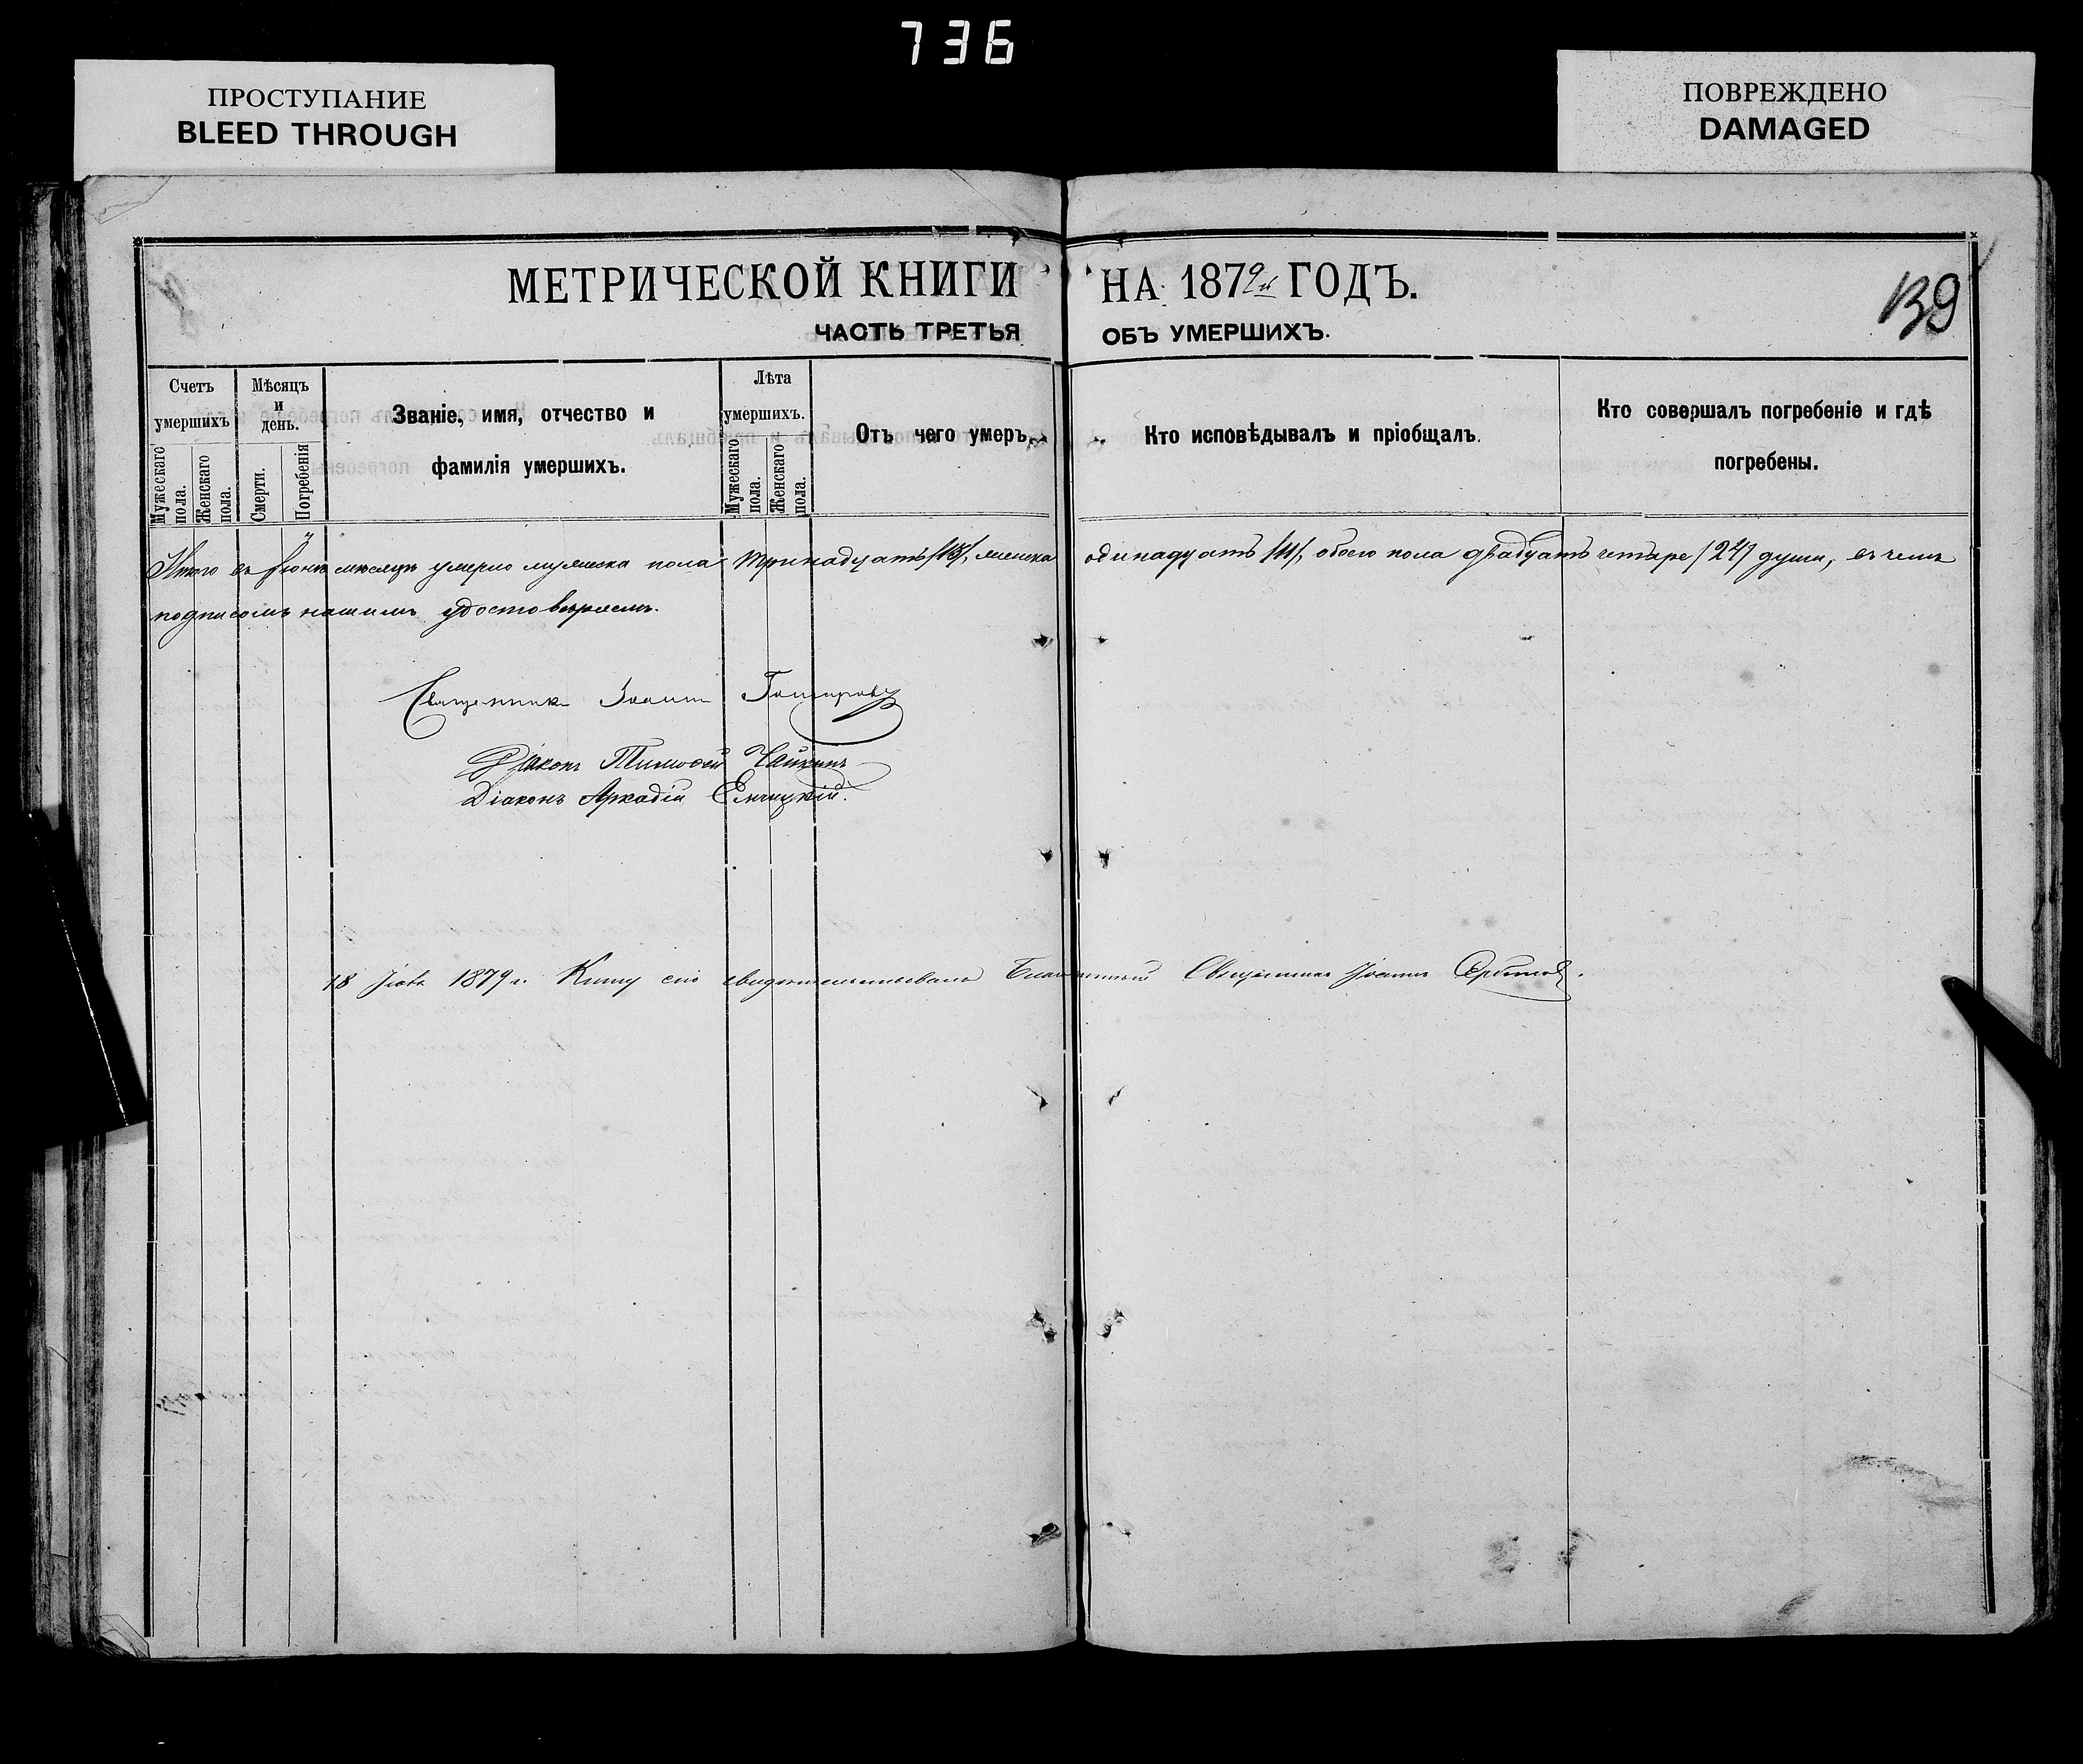 736
ПРОСТУПАНИЕ
BLEED THROUGH
ПОВРЕЖДЕНО
DAMAGED
МЕТРИЧЕСКОЙ КНИГИ НА 1879й ГОДЪ.
139
ЧАСТЬ ТРЕТЬЯ ОБЪ УМЕРШИХЪ.
Счетъ умершихъ
Мужескаго пола.
Женскаго пола.
Мѣсяцъ и день.
Смерти.
Погребенія
Званіе, имя, отчество и
фамилія умершихъ.
Лѣта умершихъ.
Мужескаго пола.
Женскаго пола.
Отъ чего умеръ.
Кто исповѣдывалъ и пріобщалъ.
Кто совершалъ погребеніе и гдѣ
погребены.
Итого въ Іюнѣ мѣсяцѣ умерло мужеска пола тринадцать /13/, женска одинадцать /11/, обоего пола двадцать четыре /24/ души, въ чемъ
подписомъ нашимъ удостовѣряемъ.
Священникъ Іоаннъ
Діаконъ Тимоѳей Чайкинъ
Діаконъ Аркадій
18 1879 г. Книгу сію свидѣтельствовалъ Благочинный Священникъ Іоаннъ